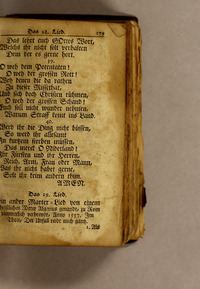 Das 18. Lied. 179
Das lehrt euch GOttes Wort,
Welchs ihr nicht solt verhalten
Dem der es gerne hört.
39.
O weh dem Potentaten!
O weh der grossen Rott!
Weh denen die da rathen
Zu dieser
Und sich doch Christen rühmen,
O weh der grossen Schand!
Euch soll nicht wunder nehmen,
Warum Straff kömt ins Land.
40.
Werd ihr die Ding nicht büssen,
So werd ihr allesamt
In kurtzem sterben müssen.
Das merck O Niderland!
Ihr Fürsten und ihr Herren,
Reich, Arm, Frau oder Mann,
Was ihr nicht habet gerne,
Solt ihr keim andern thun.
AMEN.
Das 19. Lied.
ein ander Marter-Lied von einem
Algerius genandt, zu Rom
verbrendt, Anno 1557. Im
Thon:
1. Als